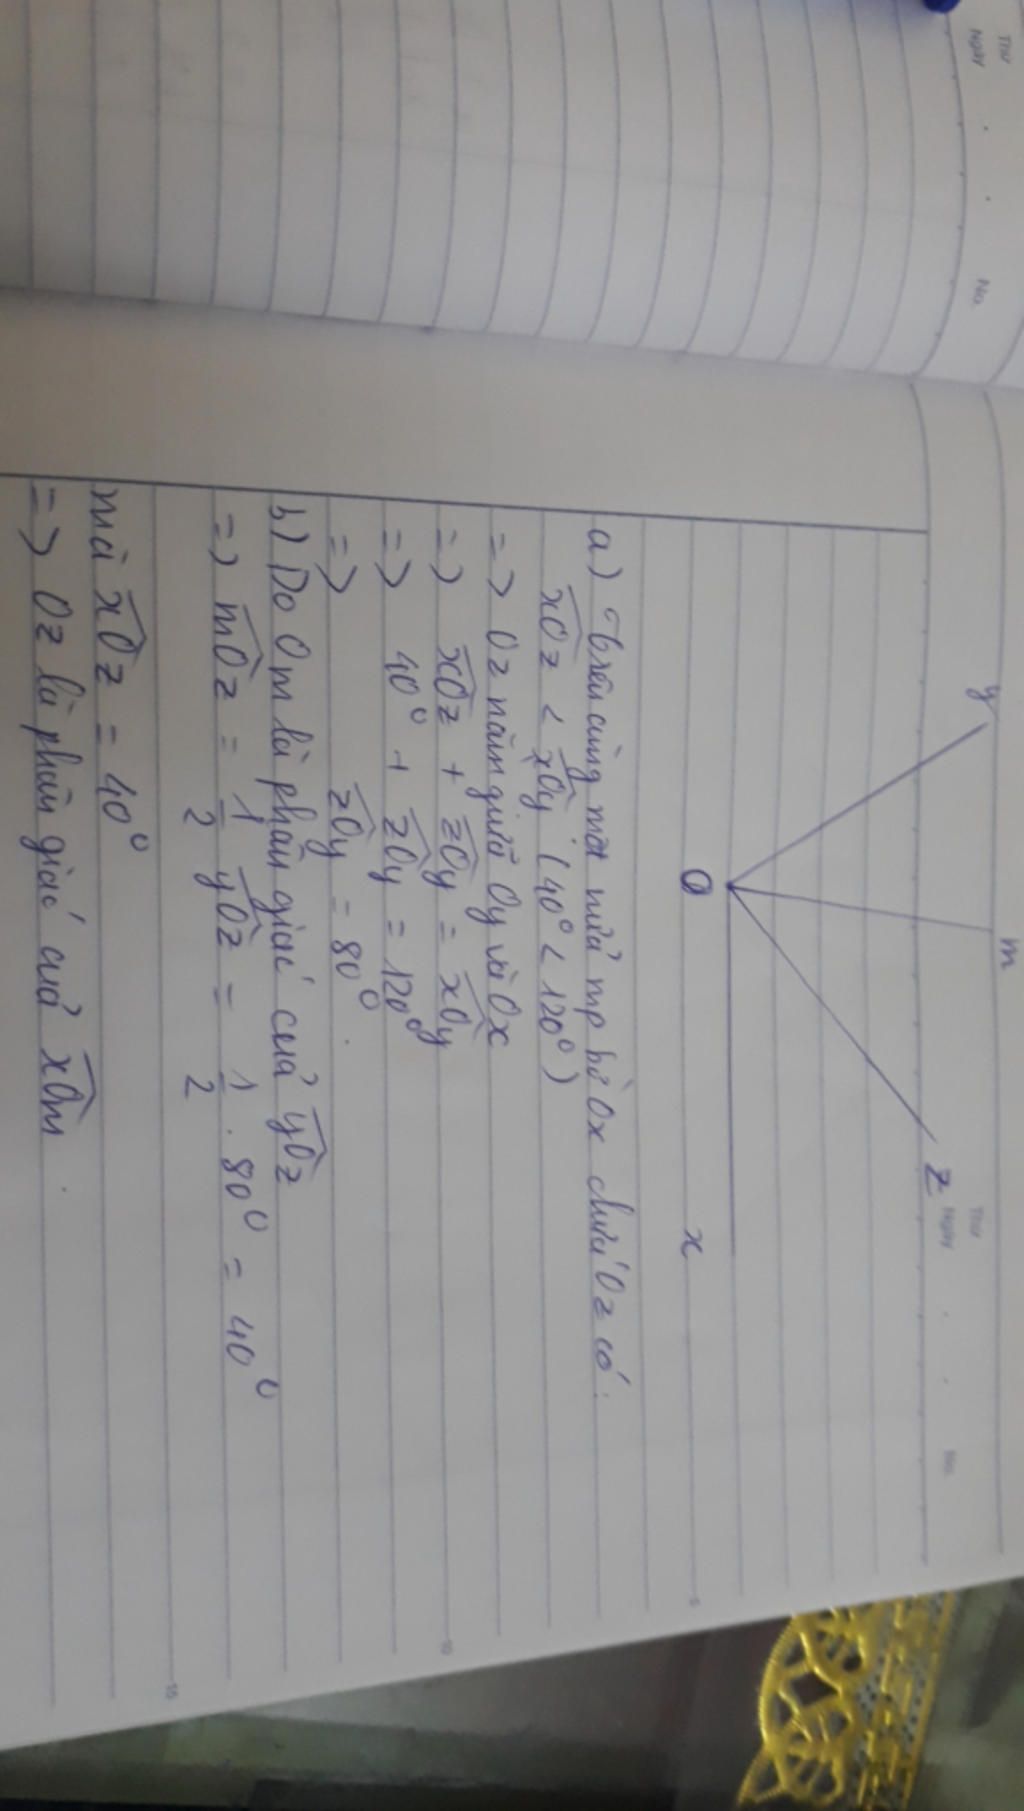 Thứ
Ngày
No.
Thứ
Ngày
No.
y
m
z
O
x
5
a) Trên cùng một nửa mp bờ Ox chứa Oz có:
xOz < xOy (40° < 120°)
=> Oz nằm giữa Oy và Ox
=> xOz + zOy = xOy
=> 40° + zOy = 120°
10
=> zOy = 80°.
b) Do Om là phân giác của yOz
=> mOz = 1/2 yOz = 1/2 . 80° = 40°
15
mà xOz = 40°
=> Oz là phân giác của xOm.